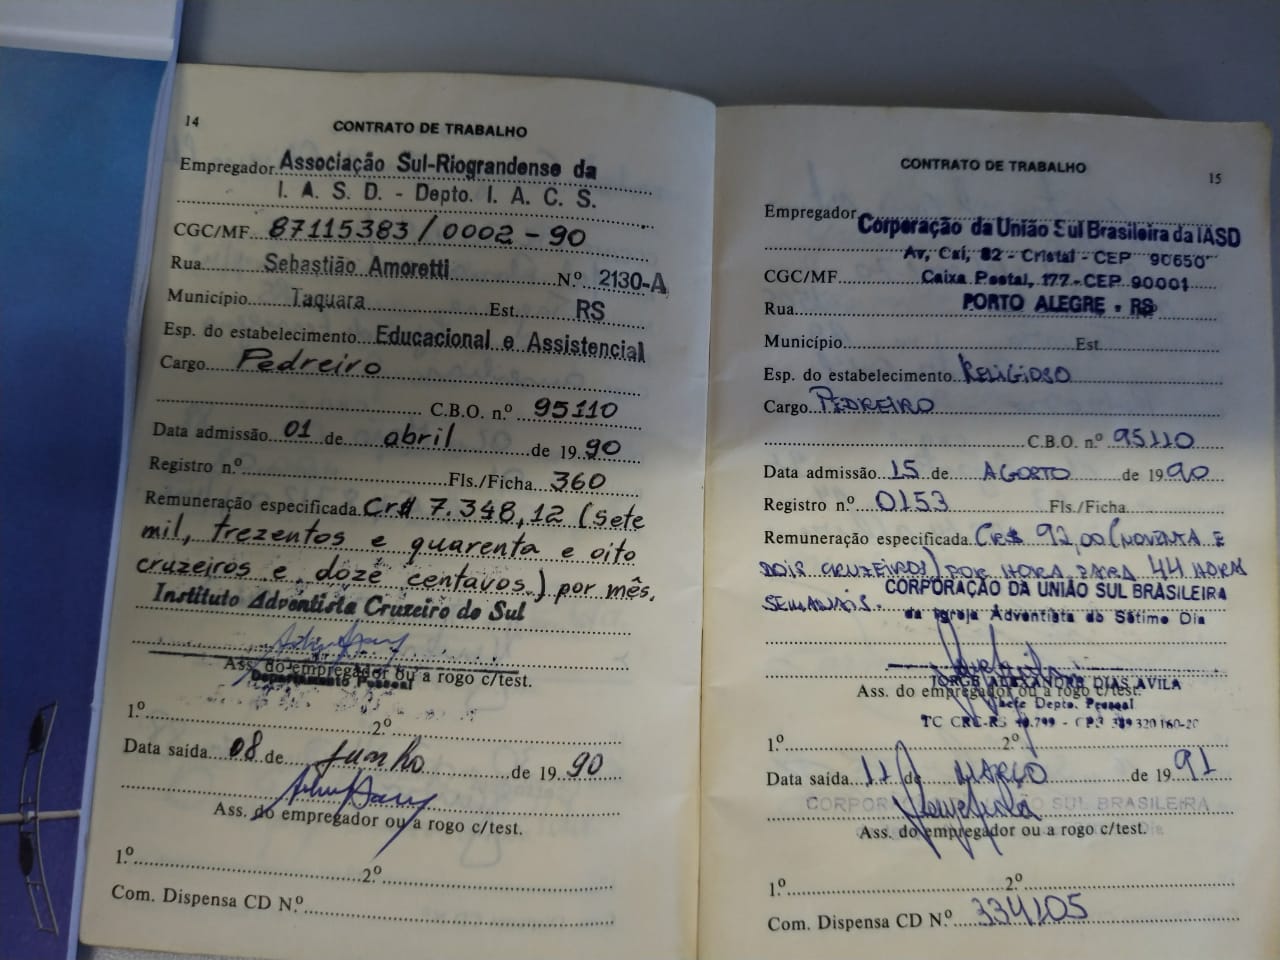 14
CONTRATO DE TRABALHO
Empregador Associação Sul-Riograndense da
I. A. S. D. - Depto. I. A. C. S.
CGC/MF 87115383/0002-90
Rua Sebastião Amoretti N.º 2130-A
Município Taquara Est. RS
Esp. do estabelecimento Educacional e Assistencial
Cargo Pedreiro
C.B.O. n.º 95110
Data admissão 01 de abril de 19 90
Registro n.º Fls./Ficha 360
Remuneração especificada Cr$ 7.348,12 (sete
mil, trezentos e quarenta e oito
cruzeiros e doze centavos) por mês.
Instituto Adventista Cruzeiro do Sul
Ass. do empregador ou a rogo c/test.
Departamento Pessoal
1.º 2.º
Data saída 08 de junho de 19 90
Ass. do empregador ou a rogo c/test.
1.º
2.º
Com. Dispensa CD N.º
CONTRATO DE TRABALHO
15
Empregador Corporação da União Sul Brasileira da IASD
Av. Caí, 82 - Cristal - CEP 90650
CGC/MF Caixa Postal, 177 - CEP 90001
Rua PORTO ALEGRE - RS
Município Est.
Esp. do estabelecimento RELIGIOSO
Cargo PEDREIRO
C.B.O. n.º 95110
Data admissão 15 de AGOSTO de 19 90
Registro n.º 0153 Fls./Ficha
Remuneração especificada CR$ 92,00 (NOVENTA E
DOIS CRUZEIROS) POR HORA PARA 44 HORAS
SEMANAIS.
CORPORAÇÃO DA UNIÃO SUL BRASILEIRA
da Igreja Adventista do Sétimo Dia
JORGE ALEXANDRE DIAS AVILA
Ass. do empregador ou a rogo c/test.
Chefe Depto. Pessoal
TC CRC-RS
1.º 2.º
Data saída 11 de MARÇO de 19 91
CORPORAÇÃO DA UNIÃO SUL BRASILEIRA
Ass. do empregador ou a rogo c/test.
1.º 2.º
Com. Dispensa CD N.º 334105